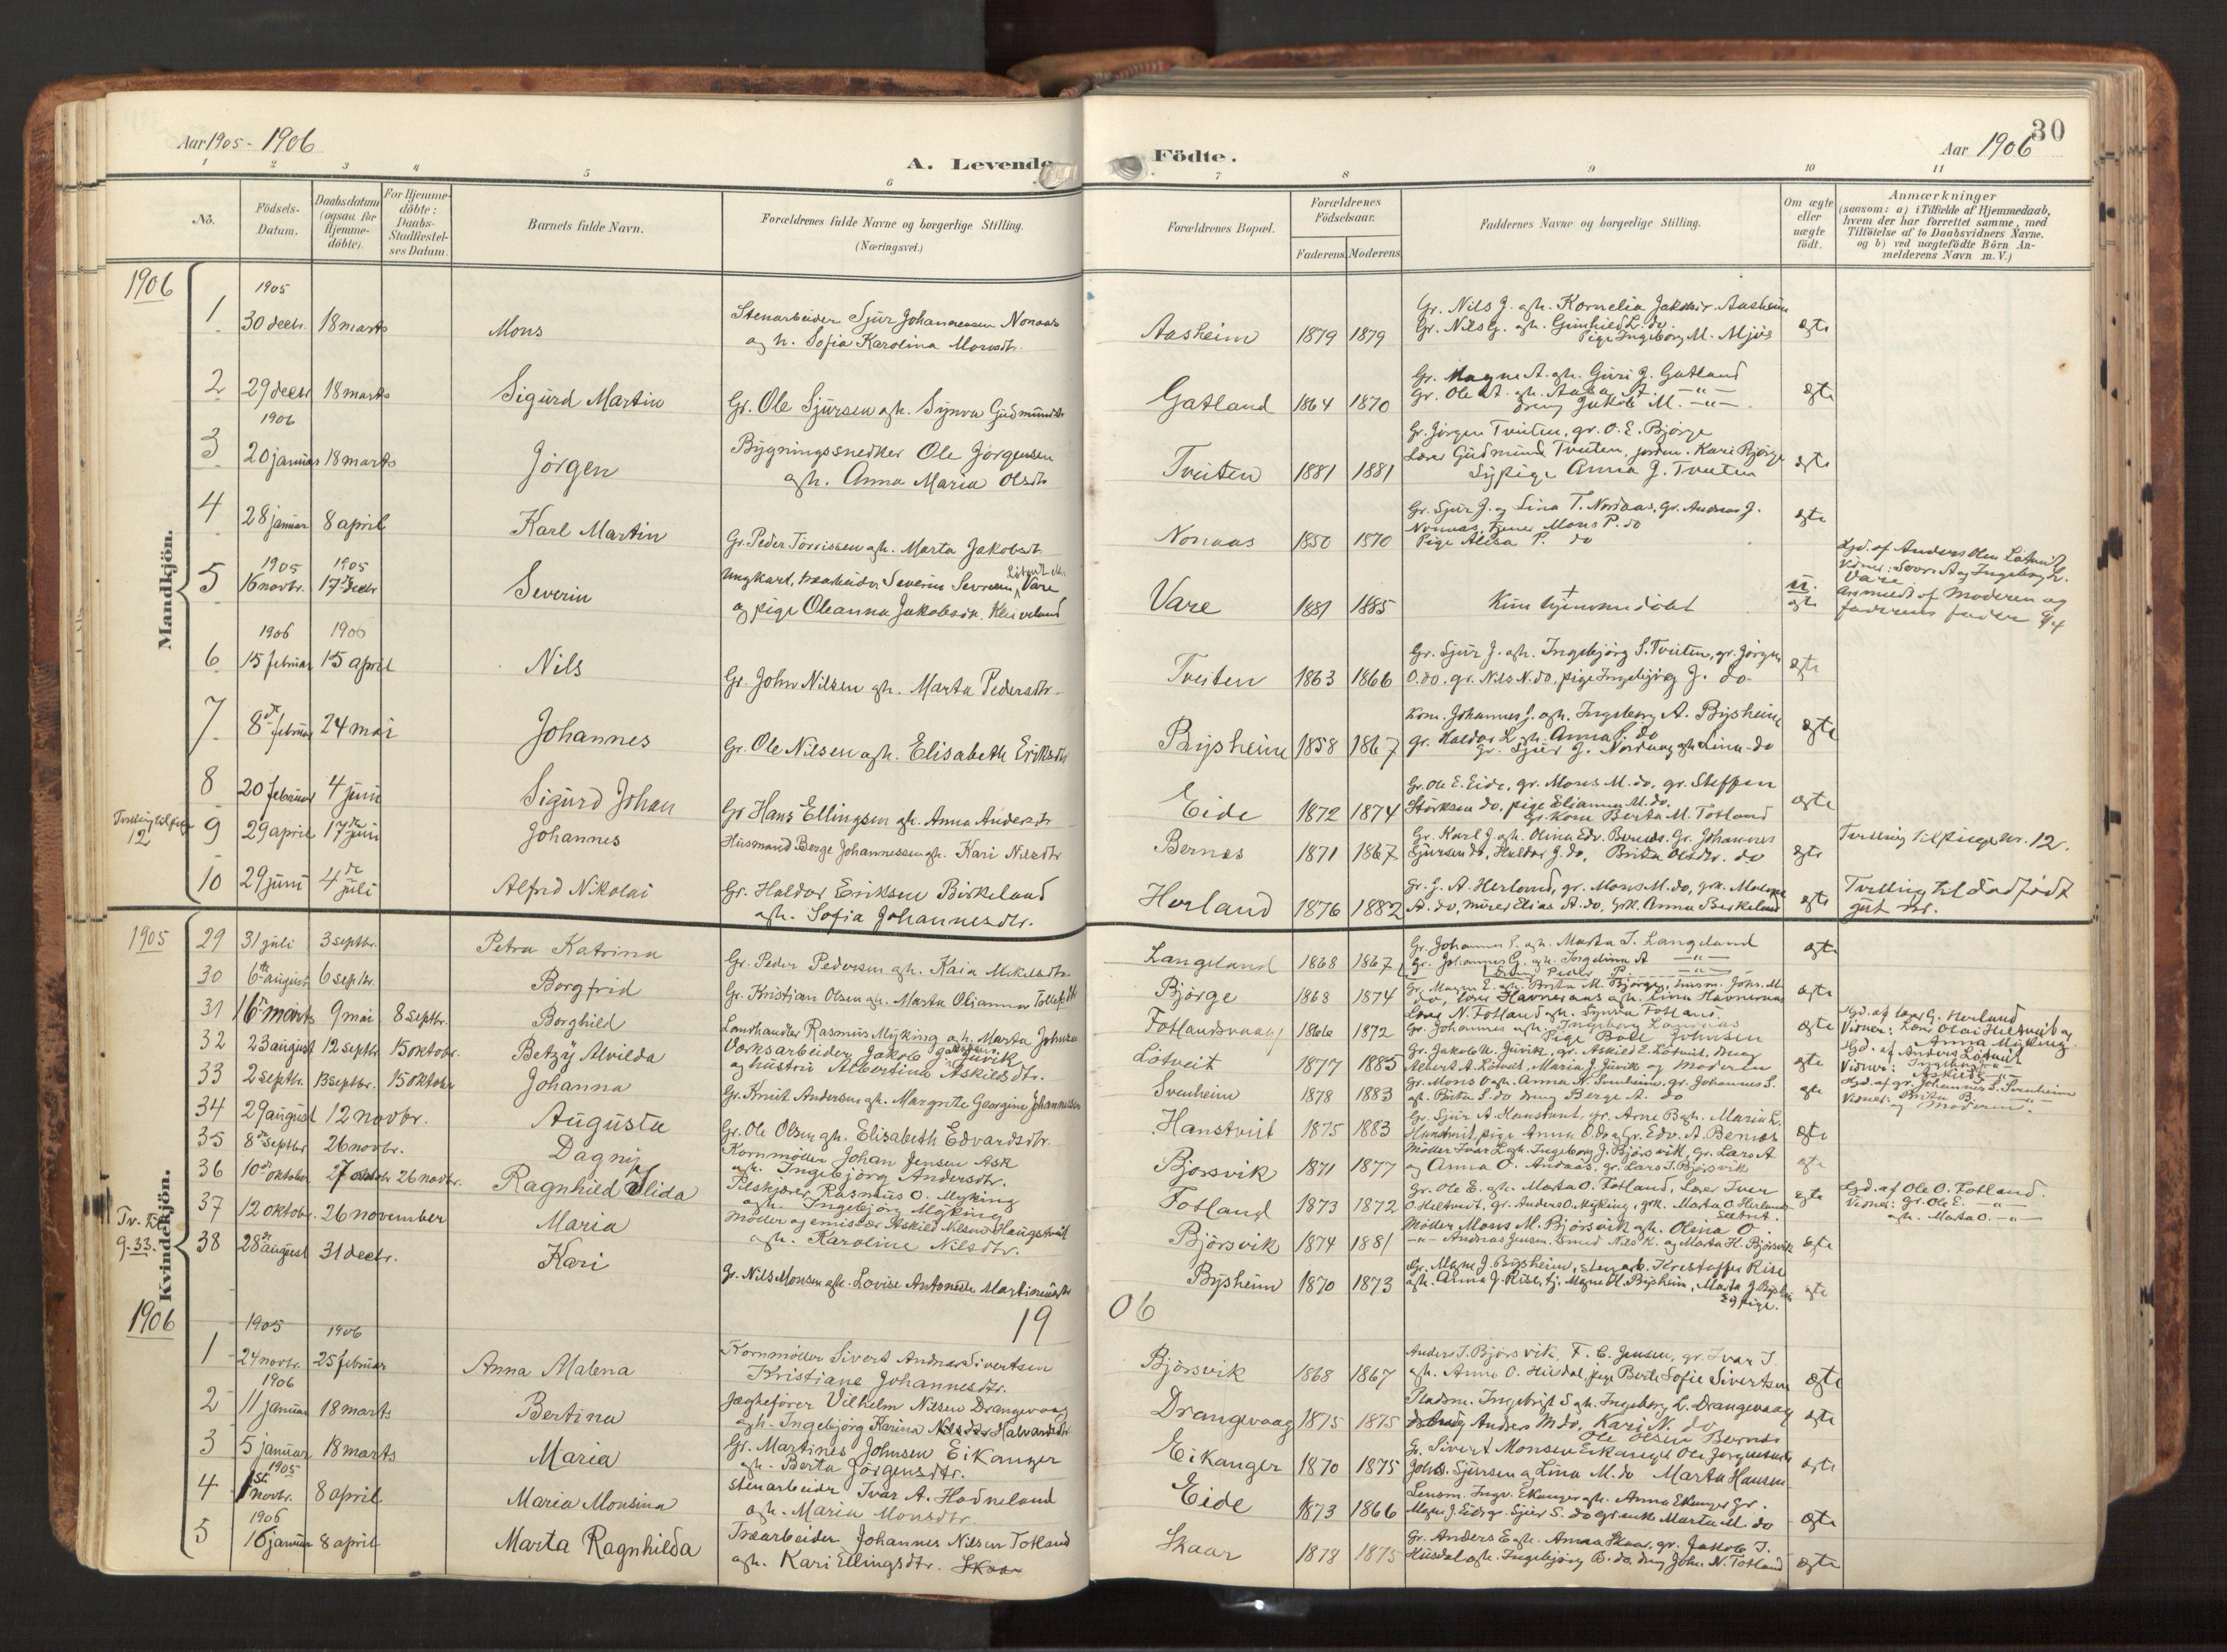 Aar 1905 - 1906
A. Levende Födte.
Aar 1906
30
1 2 3 4 5 6 7 8 9 10 11
No.
Födsels-Datum.
Daabsdatum (ogsaa for Hjemme-döbte).
For Hjemme-döbte: Daabs-Stadfæstel-ses Datum.
Barnets fulde Navn.
Forældrenes fulde Navne og borgerlige Stilling. (Næringsvei.)
Forældrenes Bopæl.
Forældrenes Födselsaar.
Faderens Moderens
Faddernes Navne og borgerlige Stilling.
Om ægte eller uægte födt.
Anmærkninger
(saasom: a) i Tilfælde af Hjemmedaab, hvem der har forrettet samme, med Tilföielse af to Daabsvidners Navne, og b) ved uægtefödte Börn An-melderens Navn m. V.)
Mandkjön.
1906
1 1905 30 decbr. 18 marts Mons
Stenarbeider Sjur Johannessen Nonaas
og h. Sofia Karolina Monsdtr.
Aasheim 1879 1879
Gr. Nils J. og h. Kornelia Aasheim
Gr. Nils G. og h. Gunhild L. do.
Pige Ingeborg M. Mjös
ægte
2 29 decbr 18 marts Sigurd Martin
Gr. Ole Sjursen og h. Synva Gudmundsdtr
Gatland 1864 1870
Gr. Magne A. og h. Guri J. Gatland
Gr. Ole A. og h.
dreng Jakob M. -"-
ægte
3 1906 20 januar 18 marts Jörgen
Bygningssnedker Ole Jörgensen
og h. Anna Maria Olsdtr
Tveiten 1881 1881
Gr. Jörgen Tveiten, gr. O. E. Bjørge
Lærer Gudmund Tveiten, Kari Bjørge
Sypige Anna J. Tveiten
ægte
4 28 januar 8 april Karl Martin
Gr. Peder Torrissen og h. Marta Jakobsdt.
Nonaas 1850 1870
Gr. Sjur J. og Lina T. Nordaas, Gr. Andreas J.
Nonaas, tjener Mons P. do
Pige P. do
ægte
5 1905 16 novbr. 1905 17de decbr Severin
Ungkarl, Severin Sevrinsen, Vare
og pige Oleanna Jakobsdtr. Kleiveland
Vare 1881 1885
Kun hjemmedöbt
u. ægte
Hjd. af Anders Olsen Lötveit
Vidner: Sevrin A og Ingeborg
Vare
Anmeldt af Moderen og
faderens fader 9/4
6 1906 15 februar 1906 15 april Nils
Gr. John Nilsen og h. Marta Pedersdtr.
Tveiten 1863 1866
Gr. Sjur J. og h. Ingebjörg S. Tveiten, gr. Jörgen
O. do. gr. Nils N. do, pige Ingebjörg J. do
ægte
7 8de februar 24 mai Johannes
Gr. Ole Nilsen og h. Elisabeth Eriksdtr
Bysheim 1858 1867
Kom. Johannes J. og h. Ingeborg A. Bysheim
gr. Haldor L. og h. Anna S. do
gr. Sjur J. Nordaas og h. Lina do
ægte
8 20 februar 4 juni Sigurd Johan
Gr Hans Ellingsen og h. Anna Andersdtr
Eide 1872 1874
Gr. Ole E. Eide, gr. Mons M. do, gr. Steffen
Störksen do, pige Elianna M. do.
Gr. Kone Berta M. Totland
ægte
Tvilling til pige 12
9 29 april 17de juni Johannes
Husmand Berge Johannessen og h. Kari Nilsdtr
Bernes 1871 1867
Gr. Karl J. og h. Olina Edv. Bernes. Gr. Johannes
Sjursen do, Haldor J. do, Brita Olsdtr. do
ægte
Tvilling til pige nr. 12.
10 29 juni 4de juli Alfred Nikolai
Gr. Haldor Eriksen Birkeland
og h. Sofia Johannesdtr.
Herland 1876 1882
Gr. J. A. Herland, gr. Mons M. do, grk.
A. do, murer Elias A. do, grk. Anna Berkeland
ægte
Tvilling til dödfödt
gut nr.
Kvindekjön.
1905
29 31 juli 3 septbr. Petra Katrina
Gr. Peder Pedersen og h. Kaia Mikelsdtr
Langeland 1868 1867
Gr. Johannes P. og h. Marta J. Langeland
Gr. Johannes G. og h. Ingelina A. -"-
Dreng Peder P. -"-
ægte
30 6te august 6 septbr. Borgfrid
Gr. Kristian Olsen og h. Marta Olianna
Bjørge 1868 1874
Gr. Magne E. og h. Brita M. Bjørge, husm. Johs. M.
do, lærer Havneraas og h. Lina Havneraas
ægte
31 16de marts 9 mai 8 septbr. Borghild
Landhandler Rasmus Myking og h. Marta Johnsen
Totlandsvaag 1866 1872
Lærer N. Totland og h. Synva Totland.
Gr. Johannes og h. Ingeborg
Pige Johnsen
ægte
Hjd. af lærer G. Herland
Vidner: Lærer Olai Hillveit og
Anna Myking
32 23 august 12 septbr 15 oktobr. Betzy Alvilda
Værksarbeider Jakob Jakobsen Juvik
og hustru Albertina Askildsdtr.
Lötveit 1877 1885
Gr. Jakob N. Juvik, gr. Askild E. Lötveit, dreng
Albert A. Lötveit, Maria J. Juvik og moderen
ægte
Hjd. af Anders Lötveit
Vidner: Ingeborg -"-
Askild -"-
33 2 septbr. 13 septbr. 15 oktobr Johanna
Gr. Knut Andersen og h. Margrete Georgine Johannessen
Svenheim 1878 1883
Gr. Mons O og h. Anna N. Svenheim, gr. Johannes S.
og h. Brita S. do dreng Berge A. do
ægte
Hjd. af gr. Johannes S. Svenheim
Vidner: Brita B. -"-
og moderen.
34 29 august 12 novbr. Augusta
Gr. Ole Olsen og h. Elisabeth Edvardsdtr.
Hanstveit 1875 1883
Gr. Sjur A. Hanstveit, gr. Arne B og h. Maria L.
Hanstveit, pige Anna O. do og Gr. Edv. A. Bernes
ægte
35 8de septbr 26 novbr. Dagny
Kornmöller Johan Jensen Ask
og h. Ingebjörg Andersdtr.
Bjørsvik 1871 1877
Möller Ivar L. og h. Ingeborg J. Björsvik, Gr. Lars A
og Anna O. Andaas, gr. Lars J. Bjørsvik
ægte
36 10de oktober 27 oktobr 26 novbr. Ragnhild Elida
Pilskjærer Rasmus O. Myking
og h. Ingebjörg Myking
Totland 1873 1872
Gr. Ole E. og h. Marta O. Totland, Lærer Iver
O. Hiltveit, gr. Anders O. Myking, grk. Marta O. Herland
ægte
Hjd. af Ole O. Totland.
Vidner: gr. Ole E. -"-
og h. Marta O. -"-
37 12 oktobr. 26 november Maria
Möller og emissær Askild Nilsen Haugstveit
og h. Karoline Nilsdtr.
Björsvik 1874 1881
Möller Mons M. Björsvik og h. Olina O.
-"- Andreas Jensen. Smed Nils K. og Marta H. Björsvik
ægte
Tv. til g. 33.
38 28de august 31 decbr. Kari
Gr. Nils Monsen og h. Lovise Antonette Martinusdtr
Bysheim 1870 1873
Gr. Magne J. Bysheim, stenarb. Kristoffer Rise
og h. Anna J. Rise, tj. Magne H. Bysheim, Marta J. Bysheim
Sypige.
ægte
1906
19 06
1 1905 24 novbr. 1906 25 februar Anna Malena
Kornmöller Sivert Andreas Sivertsen
Kristiane Johannesdtr.
Björsvik 1868 1867
Anders J. Björsvik, F. C. Jensen, gr. Ivar J.
og h. Anna O. Husdal, pige Berte Sofie Sivertsen
ægte
2 1906 11 januar 18 marts Bertina
Jægtefører Vilhelm Nilsen Drangevaag
og h. Ingebjörg Karina Halvardsdtr
Drangevaag 1875 1875
Pladsm. Ingebrigt S og h. Ingeborg L. Drangevaag
dreng Anders M do, Kari N. do
Ole Olsen Bernes
ægte
3 5 januar 18 marts Maria
Gr. Martines Johnsen Eikanger
og h. Berta Jörgensdtr.
Eikanger 1870 1875
G. Sivert Monsen Eikanger Ole Jörgensen
Johs. Sjursen og Lina M. do Marta Hansen
ægte
4 1905 1st novbr. 8 april Maria Monsina
Stenarbeider Ivar A. Hodneland
og h. Maria Monsdtr.
Eide 1873 1866
Lensm. Ingv. Ekanger og h. Anna Ekanger Gr.
Magne J. Eide gr. Sjur S. do gr. enke Marta M. do
ægte
5 1906 16 januar 8 april Marta Ragnhilda
Træarbeider Johannes Nilsen Totland
og h. Kari Ellingsdtr. Skaar
Skaar 1878 1875
Gr. Anders E og h. Anna Skaar, gr. Jakob J.
Husdal og h. Ingebjörg B. do. dreng Joh. N. Totland
ægte